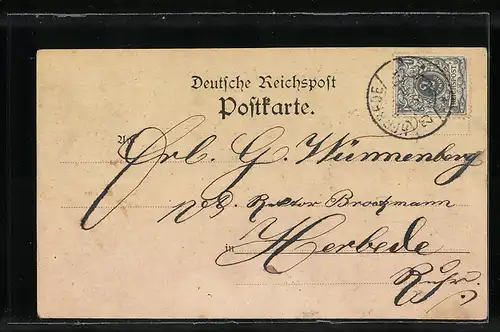 Deutsche Reichspost
Postkarte.
An
Frl. G. Wünnenberg
Rektor Brockmann
in
Herbede
Ruhr.